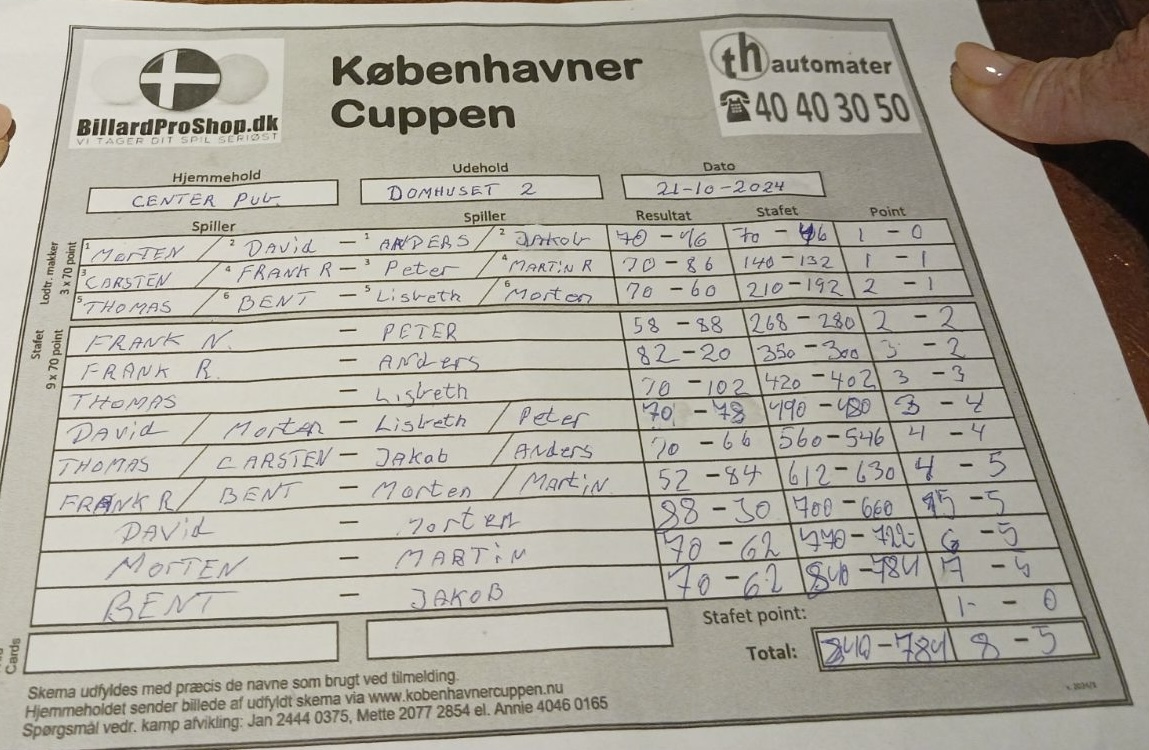 BillardProShop.dk
VI TAGER DIT SPIL SERIØST
Københavner
Cuppen
th automater
☎ 40 40 30 50
Hjemmehold Udehold Dato
CENTER PUB DOMHUSET 2 21-10-2024
Spiller Spiller Resultat Stafet Point
Lodtr. makker
3 x 70 point
1 MORTEN / 2 DAVID - 1 ANDERS / 2 Jakob 70 - 46 70 - 46 1 - 0
3 CARSTEN / 4 FRANK R - 3 Peter / 4 MARTIN R 70 - 86 140 - 132 1 - 1
5 THOMAS / 6 BENT - 5 Lisbeth / 6 Morten 70 - 60 210 - 192 2 - 1
Stafet
9 x 70 point
FRANK N. - PETER 58 - 88 268 - 280 2 - 2
FRANK R. - Anders 82 - 20 350 - 300 3 - 2
THOMAS - Lisbeth 70 - 102 420 - 402 3 - 3
DAVID / Morten - Lisbeth / Peter 70 - 78 490 - 480 3 - 4
THOMAS / CARSTEN - Jakob / Anders 70 - 66 560 - 546 4 - 4
FRANK R / BENT - Morten / Martin 52 - 84 612 - 630 4 - 5
DAVID - Morten 88 - 30 700 - 660 5 - 5
MORTEN - MARTIN 70 - 62 770 - 722 6 - 5
BENT - JAKOB 70 - 62 840 - 784 7 - 5
Stafet point: 1 - 0
Cards
Total: 840 - 784 8 - 5
Skema udfyldes med præcis de navne som brugt ved tilmelding.
Hjemmeholdet sender billede af udfyldt skema via www.kobenhavnercuppen.nu
Spørgsmål vedr. kamp afvikling: Jan 2444 0375, Mette 2077 2854 el. Annie 4046 0165